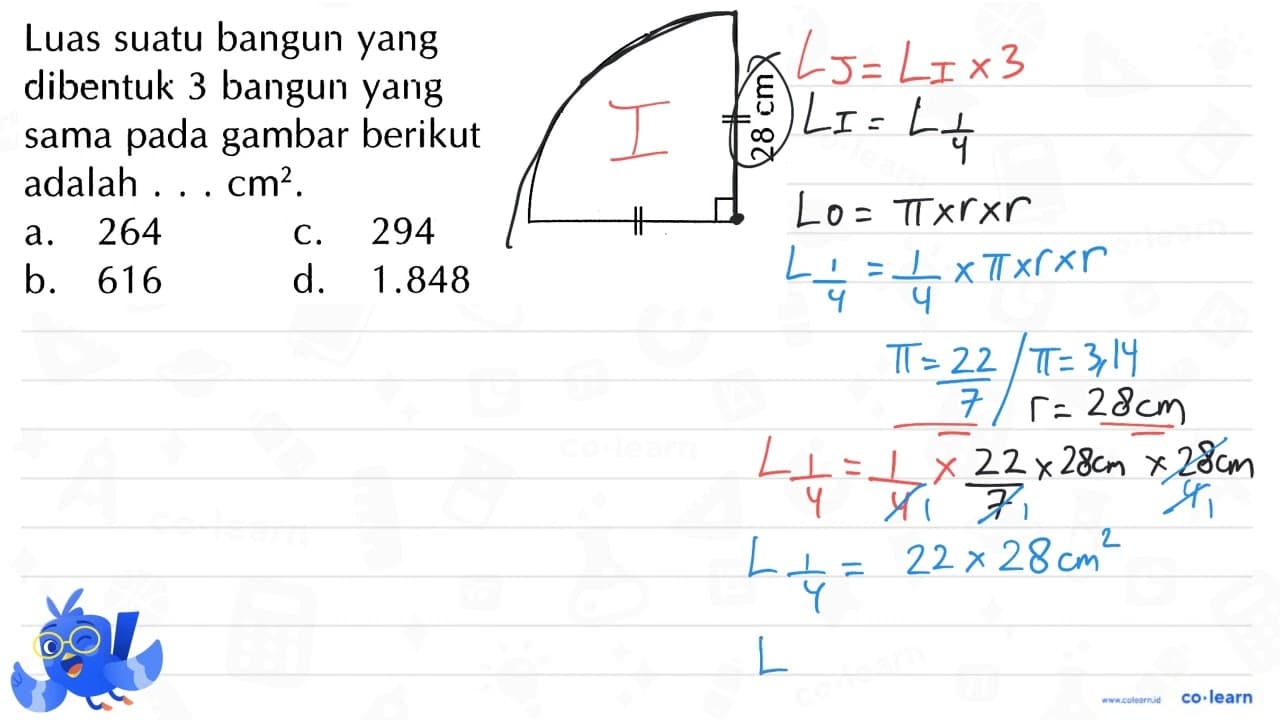 Luas suatu bangun yang
dibentuk 3 bangun yang
sama pada gambar berikut
adalah . . . cm².
a. 264 c. 294
b. 616 d. 1.848
I
28 cm
LJ = LI × 3
LI = L 1/4
LO = π×r×r
L 1/4 = 1/4 × π×r×r
π = 22/7 / π = 3,14
r = 28 cm
L 1/4 = 1/4 1 × 22/7 1 × 28cm × 28cm 4 1
L 1/4 = 22 × 28 cm²
L
www.colearn.id co·learn